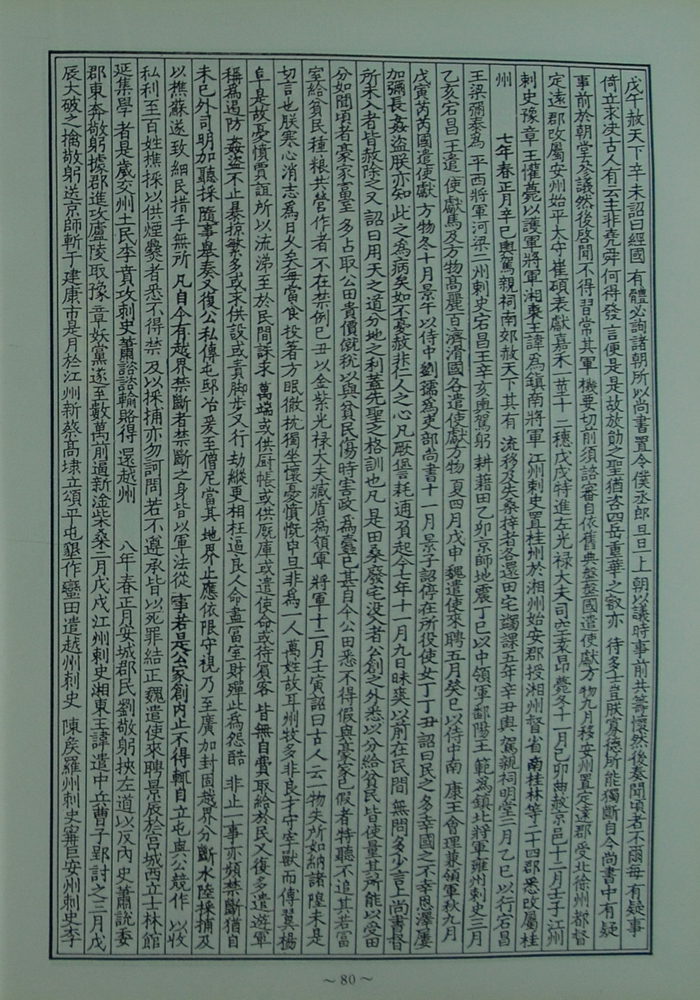 戊午赦天下辛未詔曰經國有體必詢諸朝所以尚書置令僕丞郎旦旦上朝以議時事前共籌懷然後奏聞頃者不爾每有疑事
倚立求決古人有云主非堯舜何得發言便是是故放勛之聖猶咨四岳重華之叡亦待多士豈朕寡德所能獨斷自今尚書中有疑
事前於朝堂參議然後啓聞不得習常其軍機要切前須諮審自依舊典盤盤國遣使獻方物九月移安州置定遠郡受北徐州都督
定遠郡改屬安州始平太守崔碩表獻嘉禾一莖十二穗戊戌特進左光祿大夫司空袁昂薨冬十一月己卯曲赦京邑十二月壬子江州
刺史豫章王懽薨以護軍將軍湘東王諱為鎮南將軍江州刺史置桂州於湘州始安郡授湘州督省南桂林等二十四郡悉改屬桂
州　七年春正月辛巳輿駕親祠南郊赦天下其有流移及失桑梓者各還田宅蠲課五年辛丑輿駕親祠明堂二月乙巳以行宕昌
王梁彌泰為平西將軍河梁二州刺史宕昌王辛亥輿駕躬耕籍田乙卯京師地震丁巳以中領軍鄱陽王範為鎮北將軍雍州刺史三月
乙亥宕昌王遣使獻馬及方物高麗百濟滑國各遣使獻方物夏四月戊申魏遣使來聘五月癸巳以侍中南康王會理兼領軍秋九月
戊寅芮芮國遣使獻方物冬十月景午以侍中劉孺為吏部尚書十一月景子詔停在所役使女丁丁丑詔曰民之多幸國之不幸恩澤屢
加彌長姦盜朕亦知此之為病矣如不憂赦非仁人之心凡厥愆耗逋負起今七年十一月九日昧爽以前在民間無問多少言上尚書督
所未入者皆赦除之又詔曰用天之道分地之利蓋先聖之格訓也凡是田桑廢宅沒入者公創之外悉以分給貧民皆使量其所能以受田
分如聞頃者豪家富室多占取公田貴價僦稅以與貧民傷時害政為蠹已甚自今公田悉不得假與豪家已假者特聽不追其若富
室給貧民種糧共營作者不在禁例己丑以金紫光祿大夫臧盾為領軍將軍十二月壬寅詔曰古人云一物失所如納諸隍未是
切言也朕寒心消志為日久矣每當食投著方眠徹枕獨坐懷憂憤慨申旦非為一人萬姓故耳州牧多非良才守宰虎而傅翼楊
阜是故憂憤賈誼所以流涕至於民間誅求萬端或供廚帳或供廄庫或遣使命或待賓客皆無自費取給於民又復多遣遊軍
稱為遏防姦盜不止暴掠繁多或求供設或責腳步又行劫縱更相枉逼良人命盡富室財殫此為怨酷非止一事亦頻禁斷猶自
未已外司明加聽採隨事舉奏又復公私傳屯邸冶爰至僧尼當其地界止應依限守視乃至廣加封固越界分斷水陸採捕及
以樵蘇遂致細民措手無所凡自今有越界禁斷者禁斷之身皆以軍法從事若是公家創內止不得輒自立屯與公競作以收
私利至百姓樵採以供煙爨者悉不得禁及以採捕亦勿訶問若不遵承皆以死罪結正魏遣使來聘景辰於宮城西立士林館
延集學者是歲交州土民李賁攻刺史蕭諮諮輸賂得還越州　八年春正月安城郡民劉敬躬挾左道以反內史蕭說委
郡東奔敬躬據郡進攻廬陵取豫章妖黨遂至數萬前逼新淦柴桑二月戊戌江州刺史湘東王諱遣中兵曹子郢討之三月戊
辰大破之擒敬躬送京師斬于建康市是月於江州新蔡高塘立頌平屯墾作蠻田遣越州刺史陳侯羅州刺史甯巨安州刺史李
～80～